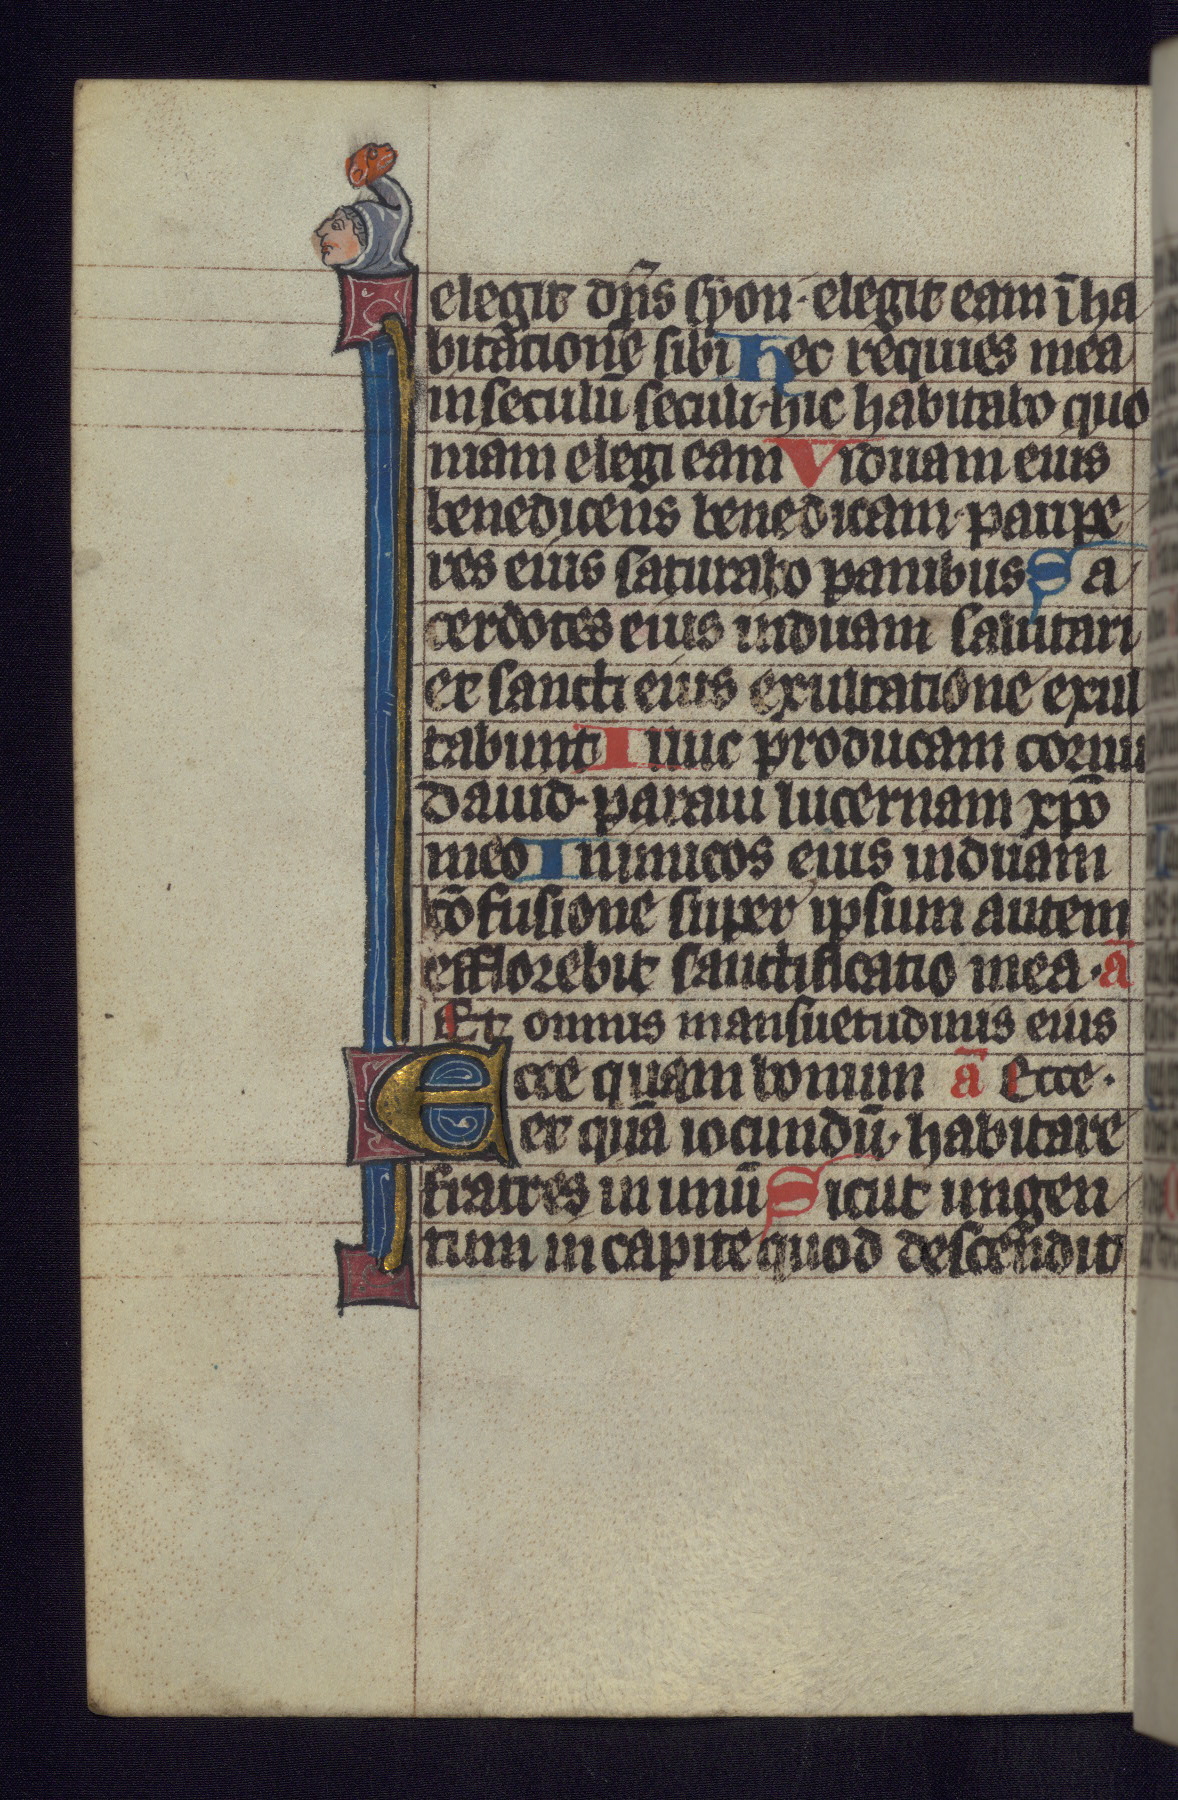 elegit dn̄s syon· elegit eam ī ha
bitatione sibi Hec requies mea
in seculū seculi· hic habitabo quo
niam elegi eam Viduam eius
benedicens benedicam· paupe
res eius saturabo panibus Sa
cerdotes eius induam salutari
et sancti eius exultatione exul
tabunt Inuc producam cornu
dauid· paraui lucernam xp̄o
meo Inimicos eius induam
cōfusione super ipsum autem
efflorebit sanctificatio mea· ā
Et omnis mansuetudinis eius
Ecce quam bonum ā Ecce·
et quā iocundū· habitare
fratres in unū Sicut ungen
tum in capite quod descendit